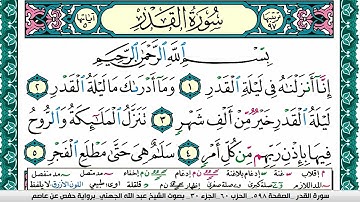 سُورَةُ الْقَدْرِ
بِسْمِ اللَّهِ الرَّحْمَٰنِ الرَّحِيمِ
إِنَّا أَنزَلْنَاهُ فِي لَيْلَةِ الْقَدْرِ ١ وَمَا أَدْرَاكَ مَا لَيْلَةُ الْقَدْرِ ٢
لَيْلَةُ الْقَدْرِ خَيْرٌ مِّنْ أَلْفِ شَهْرٍ ٣ تَنَزَّلُ الْمَلَائِكَةُ وَالرُّوحُ
فِيهَا بِإِذْنِ رَبِّهِم مِّن كُلِّ أَمْرٍ ٤ سَلَامٌ هِيَ حَتَّىٰ مَطْلَعِ الْفَجْرِ
سورة القدر الصفحة ٥٩٨. الحزب ٦٠ الجزء ٣٠ بصوت الشيخ عبد الله الجهني برواية حفص عن عاصم